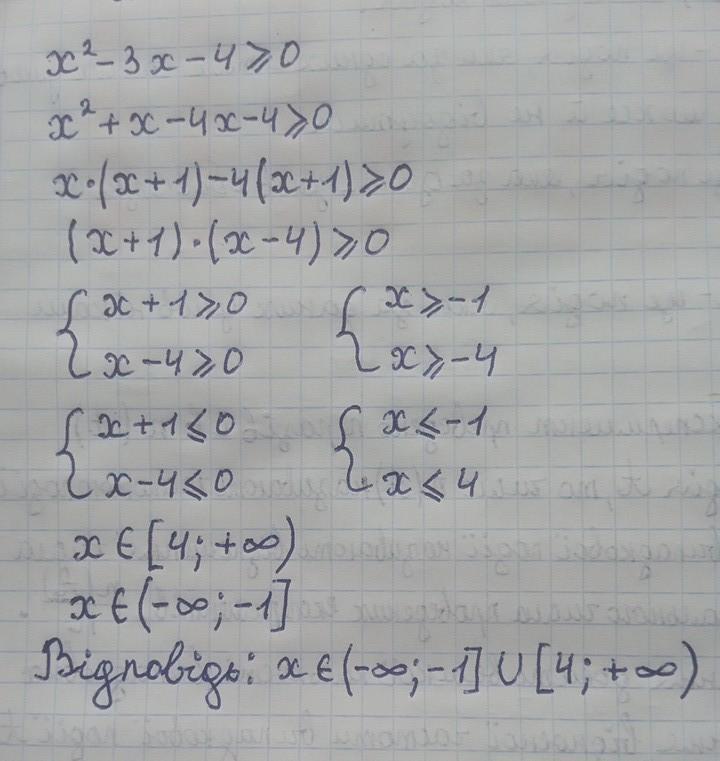 x² - 3x - 4 ⩾ 0
x² + x - 4x - 4 ⩾ 0
x·(x + 1) - 4(x + 1) ⩾ 0
(x + 1)·(x - 4) ⩾ 0
{ x + 1 ⩾ 0 { x ⩾ -1
x - 4 ⩾ 0 x ⩾ -4
{ x + 1 ⩽ 0 { x ⩽ -1
x - 4 ⩽ 0 x ⩽ 4
x ∈ [4; +∞)
x ∈ (-∞; -1]
Відповідь: x ∈ (-∞; -1] ∪ [4; +∞)